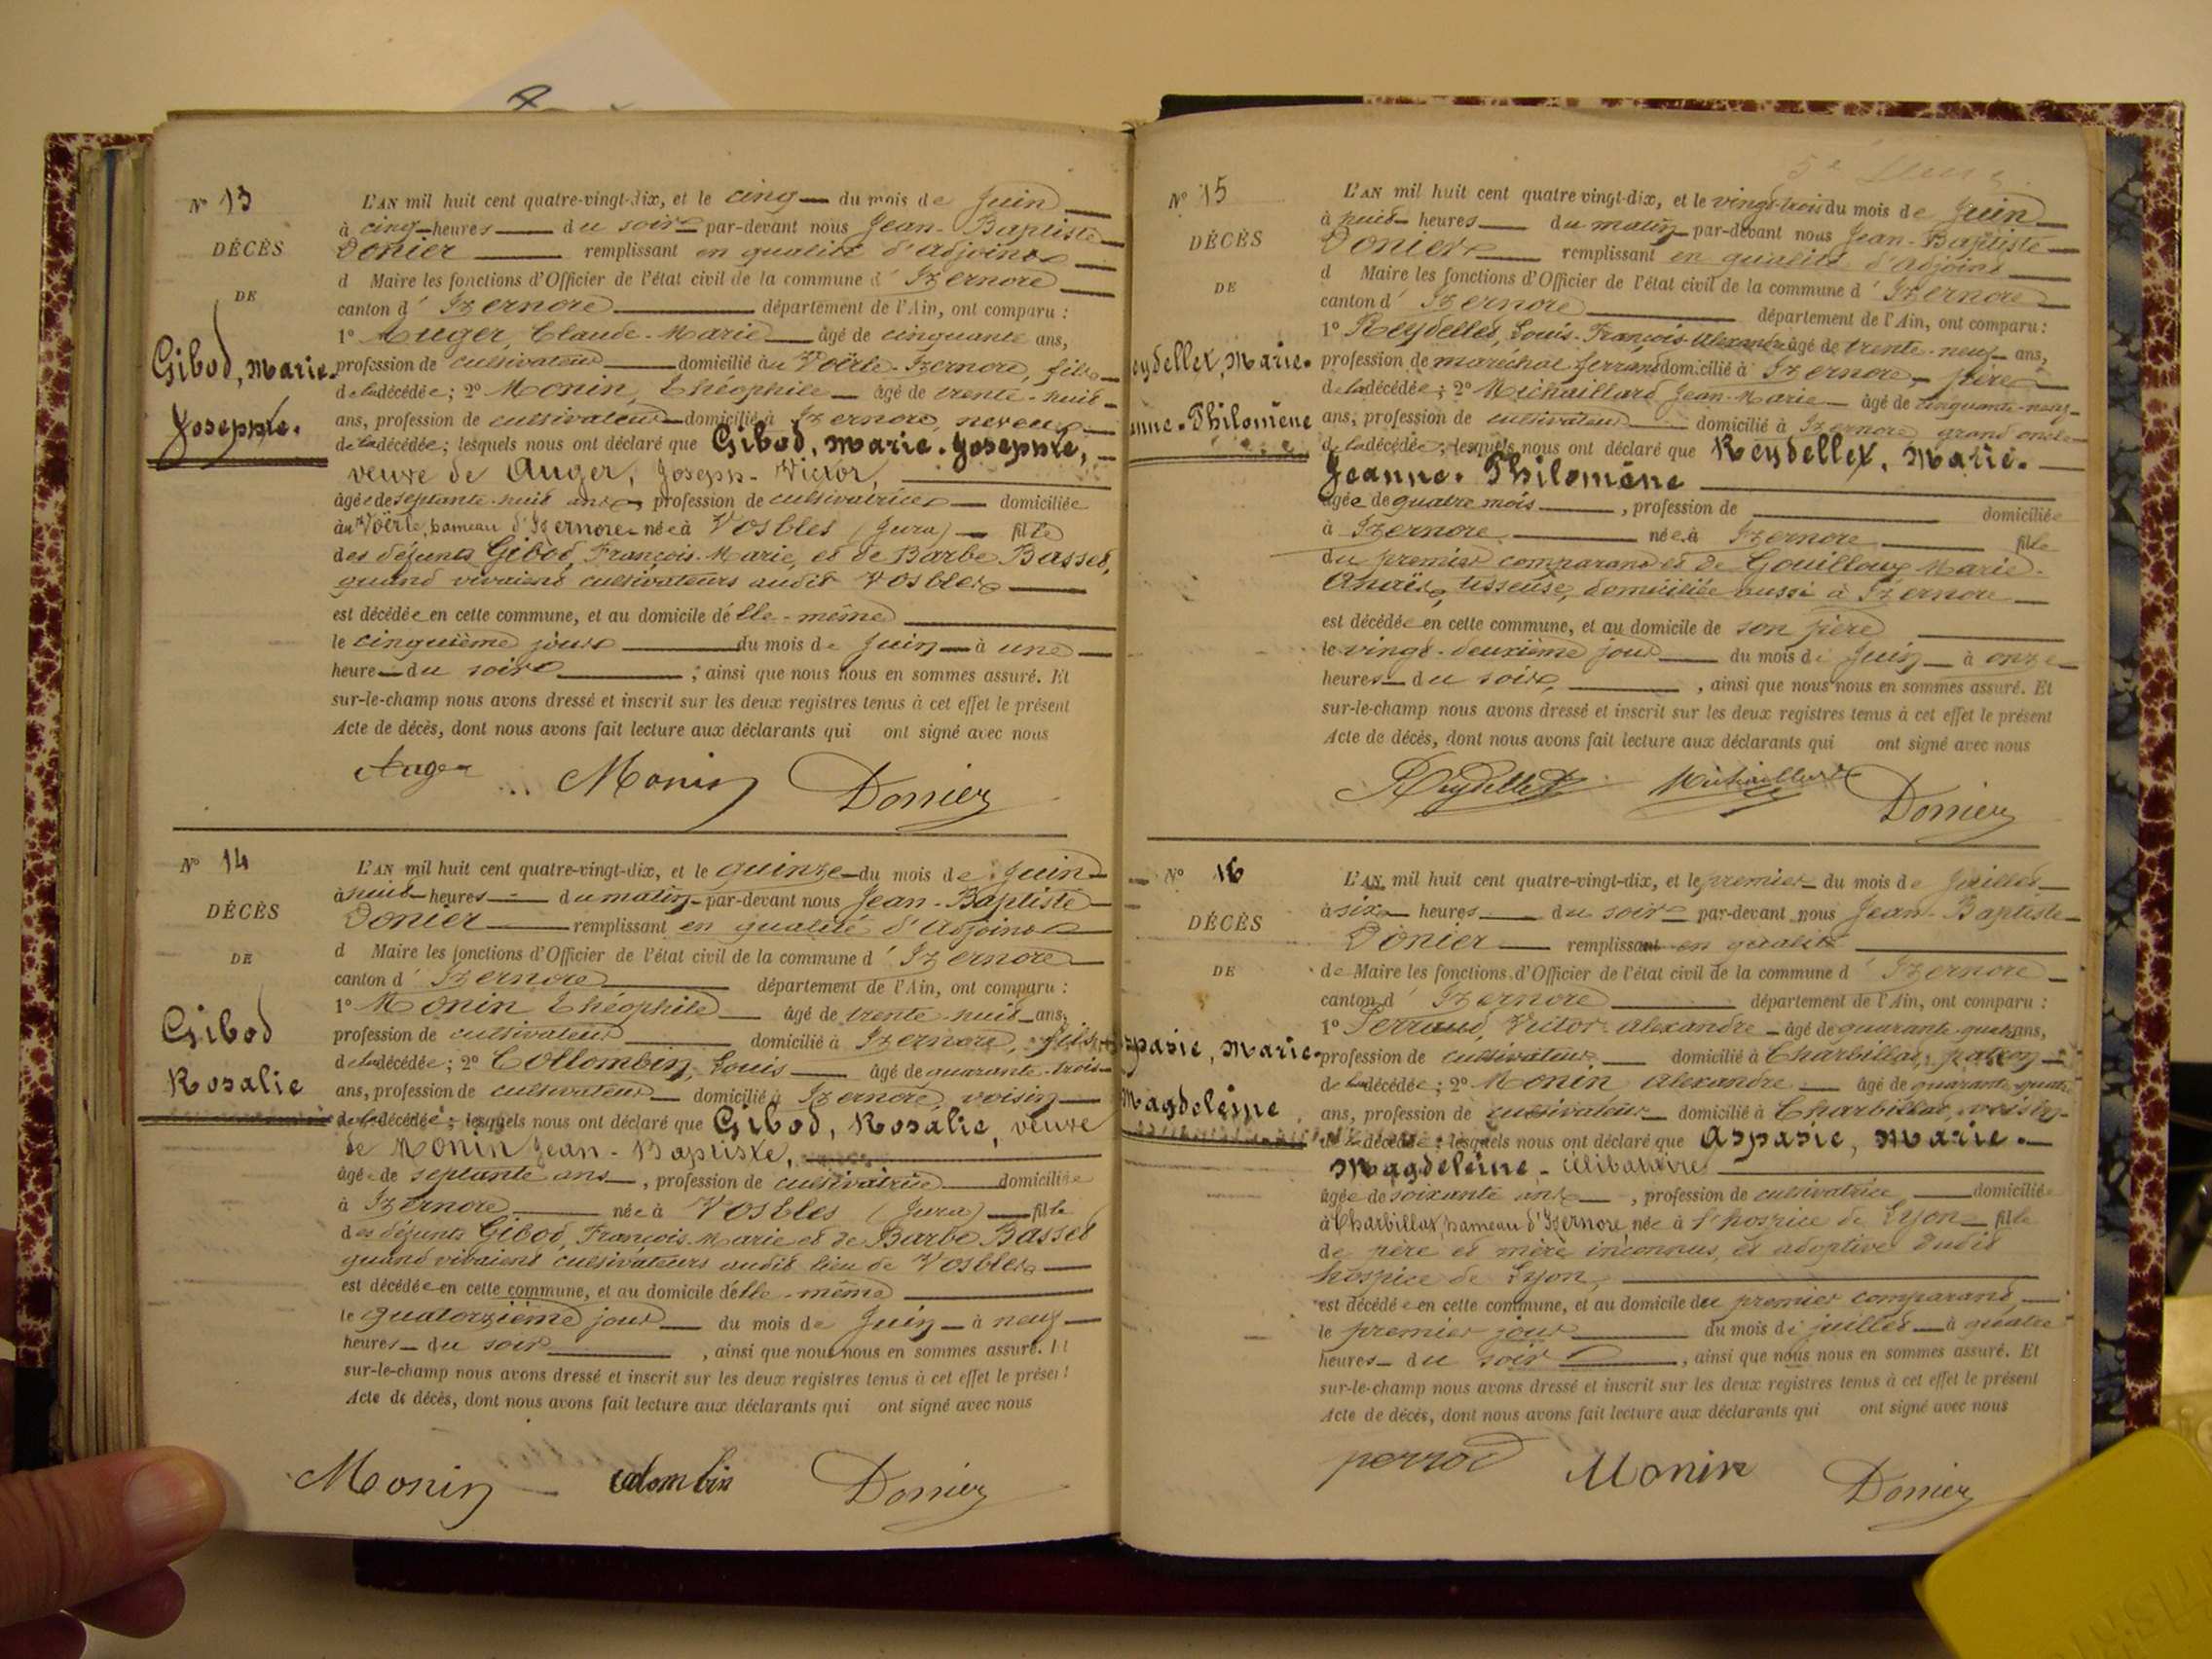 Nº 13
DÉCÈS
DE
Gibod, Marie-
Josephte.
L'AN mil huit cent quatre-vingt-dix, et le cinq du mois de Juin
à cinq heures du soir par-devant nous Jean-Baptiste
Donier remplissant en qualité d'adjoint
d Maire les fonctions d'Officier de l'état civil de la commune d'Izernore
canton d'Izernore département de l'Ain, ont comparu :
1º Auger, Claude-Marie âgé de cinquante ans,
profession de cultivateur domicilié au Voërle-Izernore, fils
de la décédée ; 2º Monin, Théophile âgé de trente-huit
ans, profession de cultivateur domicilié à Izernore, neveu
de la décédée ; lesquels nous ont déclaré que Gibod, Marie-Josephte,
veuve de Auger, Joseph-Victor,
âgée de septante-huit ans, profession de cultivatrice domiciliée
au Voërle, hameau d'Izernore née à Vosbles (Jura) fille
des défunts Gibod, François-Marie, et de Barbe Basset,
quand vivaient cultivateurs audit Vosbles
est décédée en cette commune, et au domicile d'elle-même
le cinquième jour du mois de Juin à une
heure du soir ; ainsi que nous nous en sommes assuré. Et
sur-le-champ nous avons dressé et inscrit sur les deux registres tenus à cet effet le présent
Acte de décès, dont nous avons fait lecture aux déclarants qui ont signé avec nous
Auger Monin Donier
Nº 14
DÉCÈS
DE
Gibod
Rosalie
L'AN mil huit cent quatre-vingt-dix, et le quinze du mois de Juin
à huit heures du matin par-devant nous Jean-Baptiste
Donier remplissant en qualité d'adjoint
d Maire les fonctions d'Officier de l'état civil de la commune d'Izernore
canton d'Izernore département de l'Ain, ont comparu :
1º Monin Théophile âgé de trente-huit ans,
profession de cultivateur domicilié à Izernore, fils
de la décédée ; 2º Collombin, Louis âgé de quarante-trois
ans, profession de cultivateur domicilié à Izernore, voisin
de la décédée ; lesquels nous ont déclaré que Gibod, Rosalie, veuve
de Monin Jean-Baptiste,
âgée de septante ans, profession de cultivatrice domiciliée
à Izernore née à Vosbles (Jura) fille
des défunts Gibod, François-Marie et de Barbe Basset
quand vivaient cultivateurs audit lieu de Vosbles
est décédée en cette commune, et au domicile d'elle-même
le quatorzième jour du mois de Juin à neuf
heures du soir, ainsi que nous nous en sommes assuré. Et
sur-le-champ nous avons dressé et inscrit sur les deux registres tenus à cet effet le présent
Acte de décès, dont nous avons fait lecture aux déclarants qui ont signé avec nous
Monin Colombin Donier
Nº 15
DÉCÈS
DE
eydellet, Marie-
anne-Philomène
L'AN mil huit cent quatre vingt-dix, et le vingt-trois du mois de Juin
à huit heures du matin par-devant nous Jean-Baptiste
Donier remplissant en qualité d'adjoint
d Maire les fonctions d'Officier de l'état civil de la commune d'Izernore
canton d'Izernore département de l'Ain, ont comparu :
1º Reydellet, Louis-François-Alexandre âgé de trente-neuf ans,
profession de maréchal ferrant domicilié à Izernore, père
de la décédée ; 2º Michaillard Jean-Marie âgé de cinquante-neuf
ans, profession de cultivateur domicilié à Izernore grand oncle
de la décédée ; lesquels nous ont déclaré que Reydellet, Marie-
Jeanne-Philomène
âgée de quatre mois, profession de domiciliée
à Izernore née à Izernore fille
du premier comparant et de Gouilloux Marie-
Anaïs, tisseuse, domiciliée aussi à Izernore
est décédée en cette commune, et au domicile de son père
le vingt-deuxième jour du mois de Juin à onze
heures du soir, ainsi que nous nous en sommes assuré. Et
sur-le-champ nous avons dressé et inscrit sur les deux registres tenus à cet effet le présent
Acte de décès, dont nous avons fait lecture aux déclarants qui ont signé avec nous
Reydellet Michaillard Donier
Nº 16
DÉCÈS
DE
spasie, Marie-
Magdeleine
L'AN mil huit cent quatre-vingt-dix, et le premier du mois de Juillet
à six heures du soir par-devant nous Jean-Baptiste
Donier remplissant en qualité
de Maire les fonctions d'Officier de l'état civil de la commune d'Izernore
canton d'Izernore département de l'Ain, ont comparu :
1º Perraud, Victor-Alexandre âgé de quarante-quatre ans,
profession de cultivateur domicilié à Charbillat, patron
de la décédée ; 2º Monin Alexandre âgé de quarante-quatre
ans, profession de cultivateur domicilié à Charbillat, voisin
de la décédée ; lesquels nous ont déclaré que Aspasie, Marie-
Magdeleine-célibataire
âgée de soixante ans, profession de cultivatrice domiciliée
à Charbillat, hameau d'Izernore, née à l'hospice de Lyon fille
de père et mère inconnus, et adoptive dudit
hospice de Lyon,
est décédée en cette commune, et au domicile du premier comparant
le premier jour du mois de juillet à quatre
heures du soir, ainsi que nous nous en sommes assuré. Et
sur-le-champ nous avons dressé et inscrit sur les deux registres tenus à cet effet le présent
Acte de décès, dont nous avons fait lecture aux déclarants qui ont signé avec nous
perrod Monin Donier